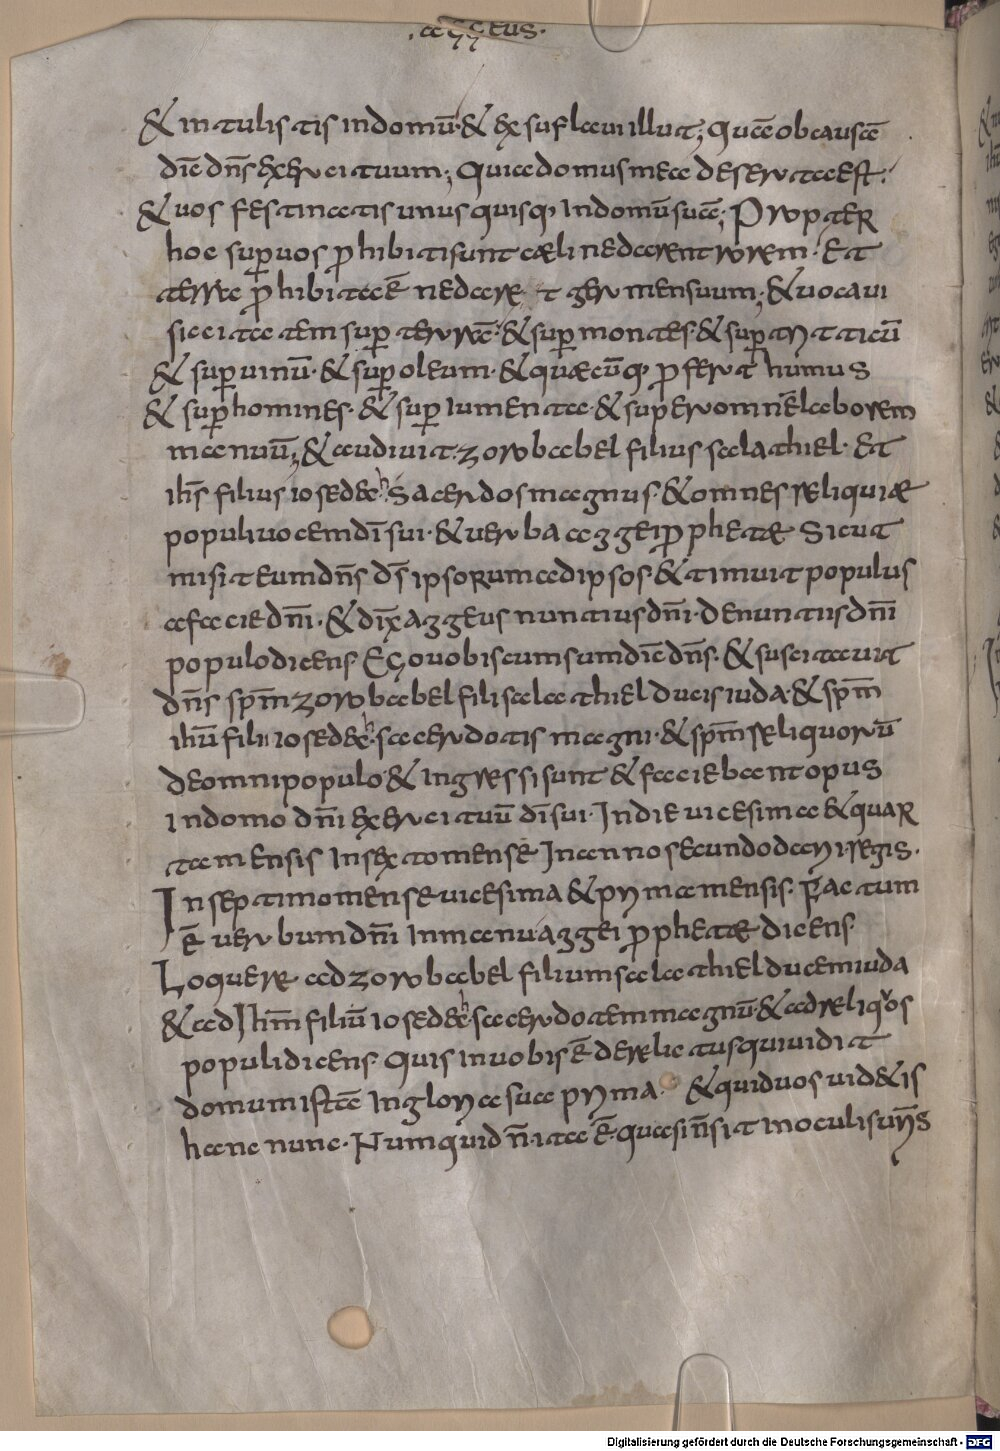 .aggeus.
& intulistis in domū· & exsuflaui illut; quā ob causā
diē dn̄s exercituum; Quia domus mea deserta est;
& uos festinatis unusquisq; in domū suā; Propter
hoc sup̱ uos p̱hibiti sunt cæli ne darent rorem· Et
terra p̱hibita ē ne daret germen suum; & uocaui
siccitatem sup̱ terrā· & sup̱ montes· & sup̱ triticū
& sup̱ uinū· & sup̱ oleum· & quæcūq; p̱fert humus
& sup̱ homines· & sup̱ iumenta· & super omnē laborem
manuū; & audiuit zorobabel filius salathiel· Et
ih̄s filius iosedech sacerdos magnus· & omnes reliquiæ
populi uocem dī sui· & uerba aggei p̱phetæ Sicut
misit eum dn̄s ds̄ ipsorum ad ipsos· & timuit populus
a facie dn̄i· & dix̄ aggeus nuntius dn̄i· De nuntiis dn̄i
populo dicens· Ego uobiscum sum diē dn̄s· & suscitauit
dn̄s spm̄ zorobabel fili salathiel ducis iuda· & spm̄
ihū filii iosedech· sacerdotis magni· & spm̄ reliquorū
de omni populo· & ingressi sunt & faciebant opus
in domo dn̄i exercituū dī sui· In die uicesima & quar
ta mensis in sexto mense In anno secundo darii regis·
In septimo mense uicesima & prima mensis· factum
ē uerbum dn̄i in manu aggei p̱phetæ dicens·
Loquere ad zorobabel filium salathiel ducem iuda
& ad Ihm̄ filiū iosedech· sacerdotem magnū· & ad reliquos
populi dicens· Quis in uobis ē derelictus qui uidit
domum istā in gloria sua prima· & quid uos uidetis
hanc nunc· Numquid n̄ ita ē· quasi n̄ sit in oculis urīs
Digitalisierung gefördert durch die Deutsche Forschungsgemeinschaft - DFG